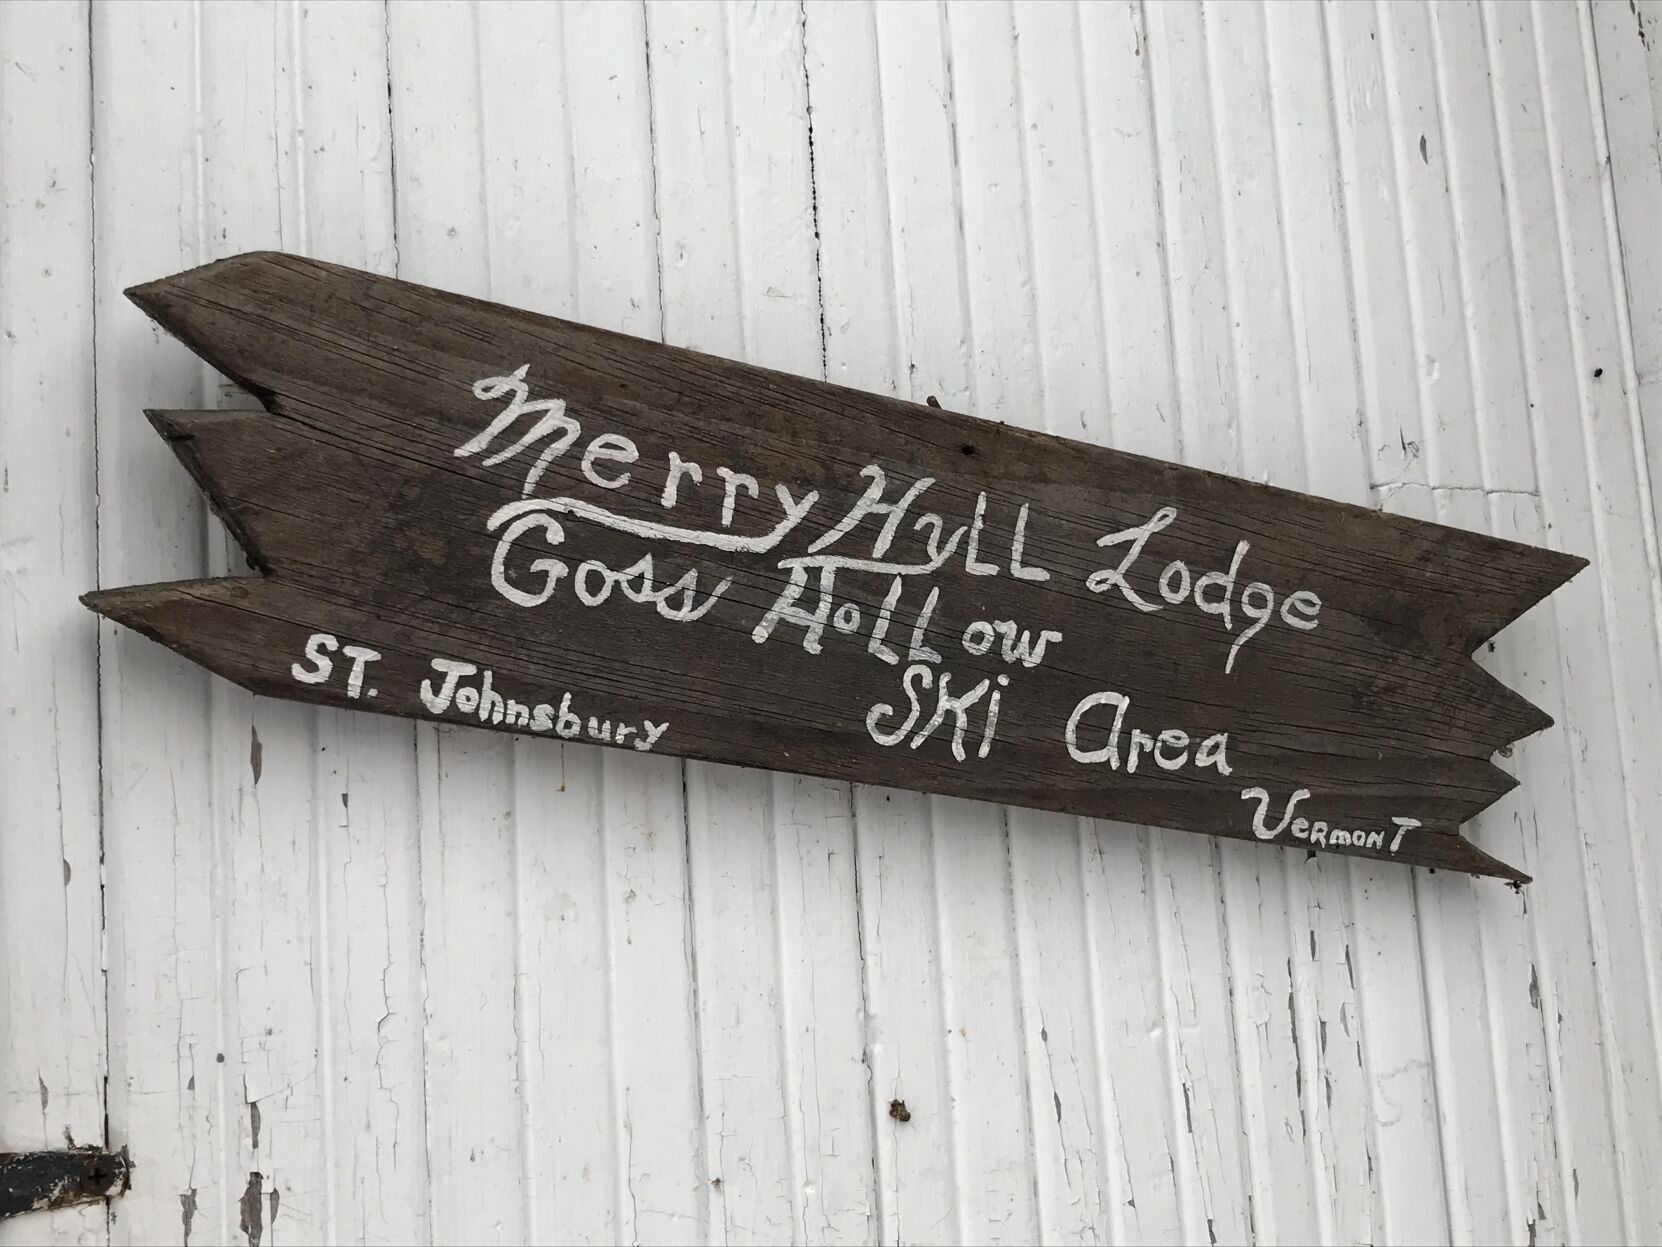 Merry Hyll Lodge
Goss Hollow
SKi Area
ST. Johnsbury
VERMONT